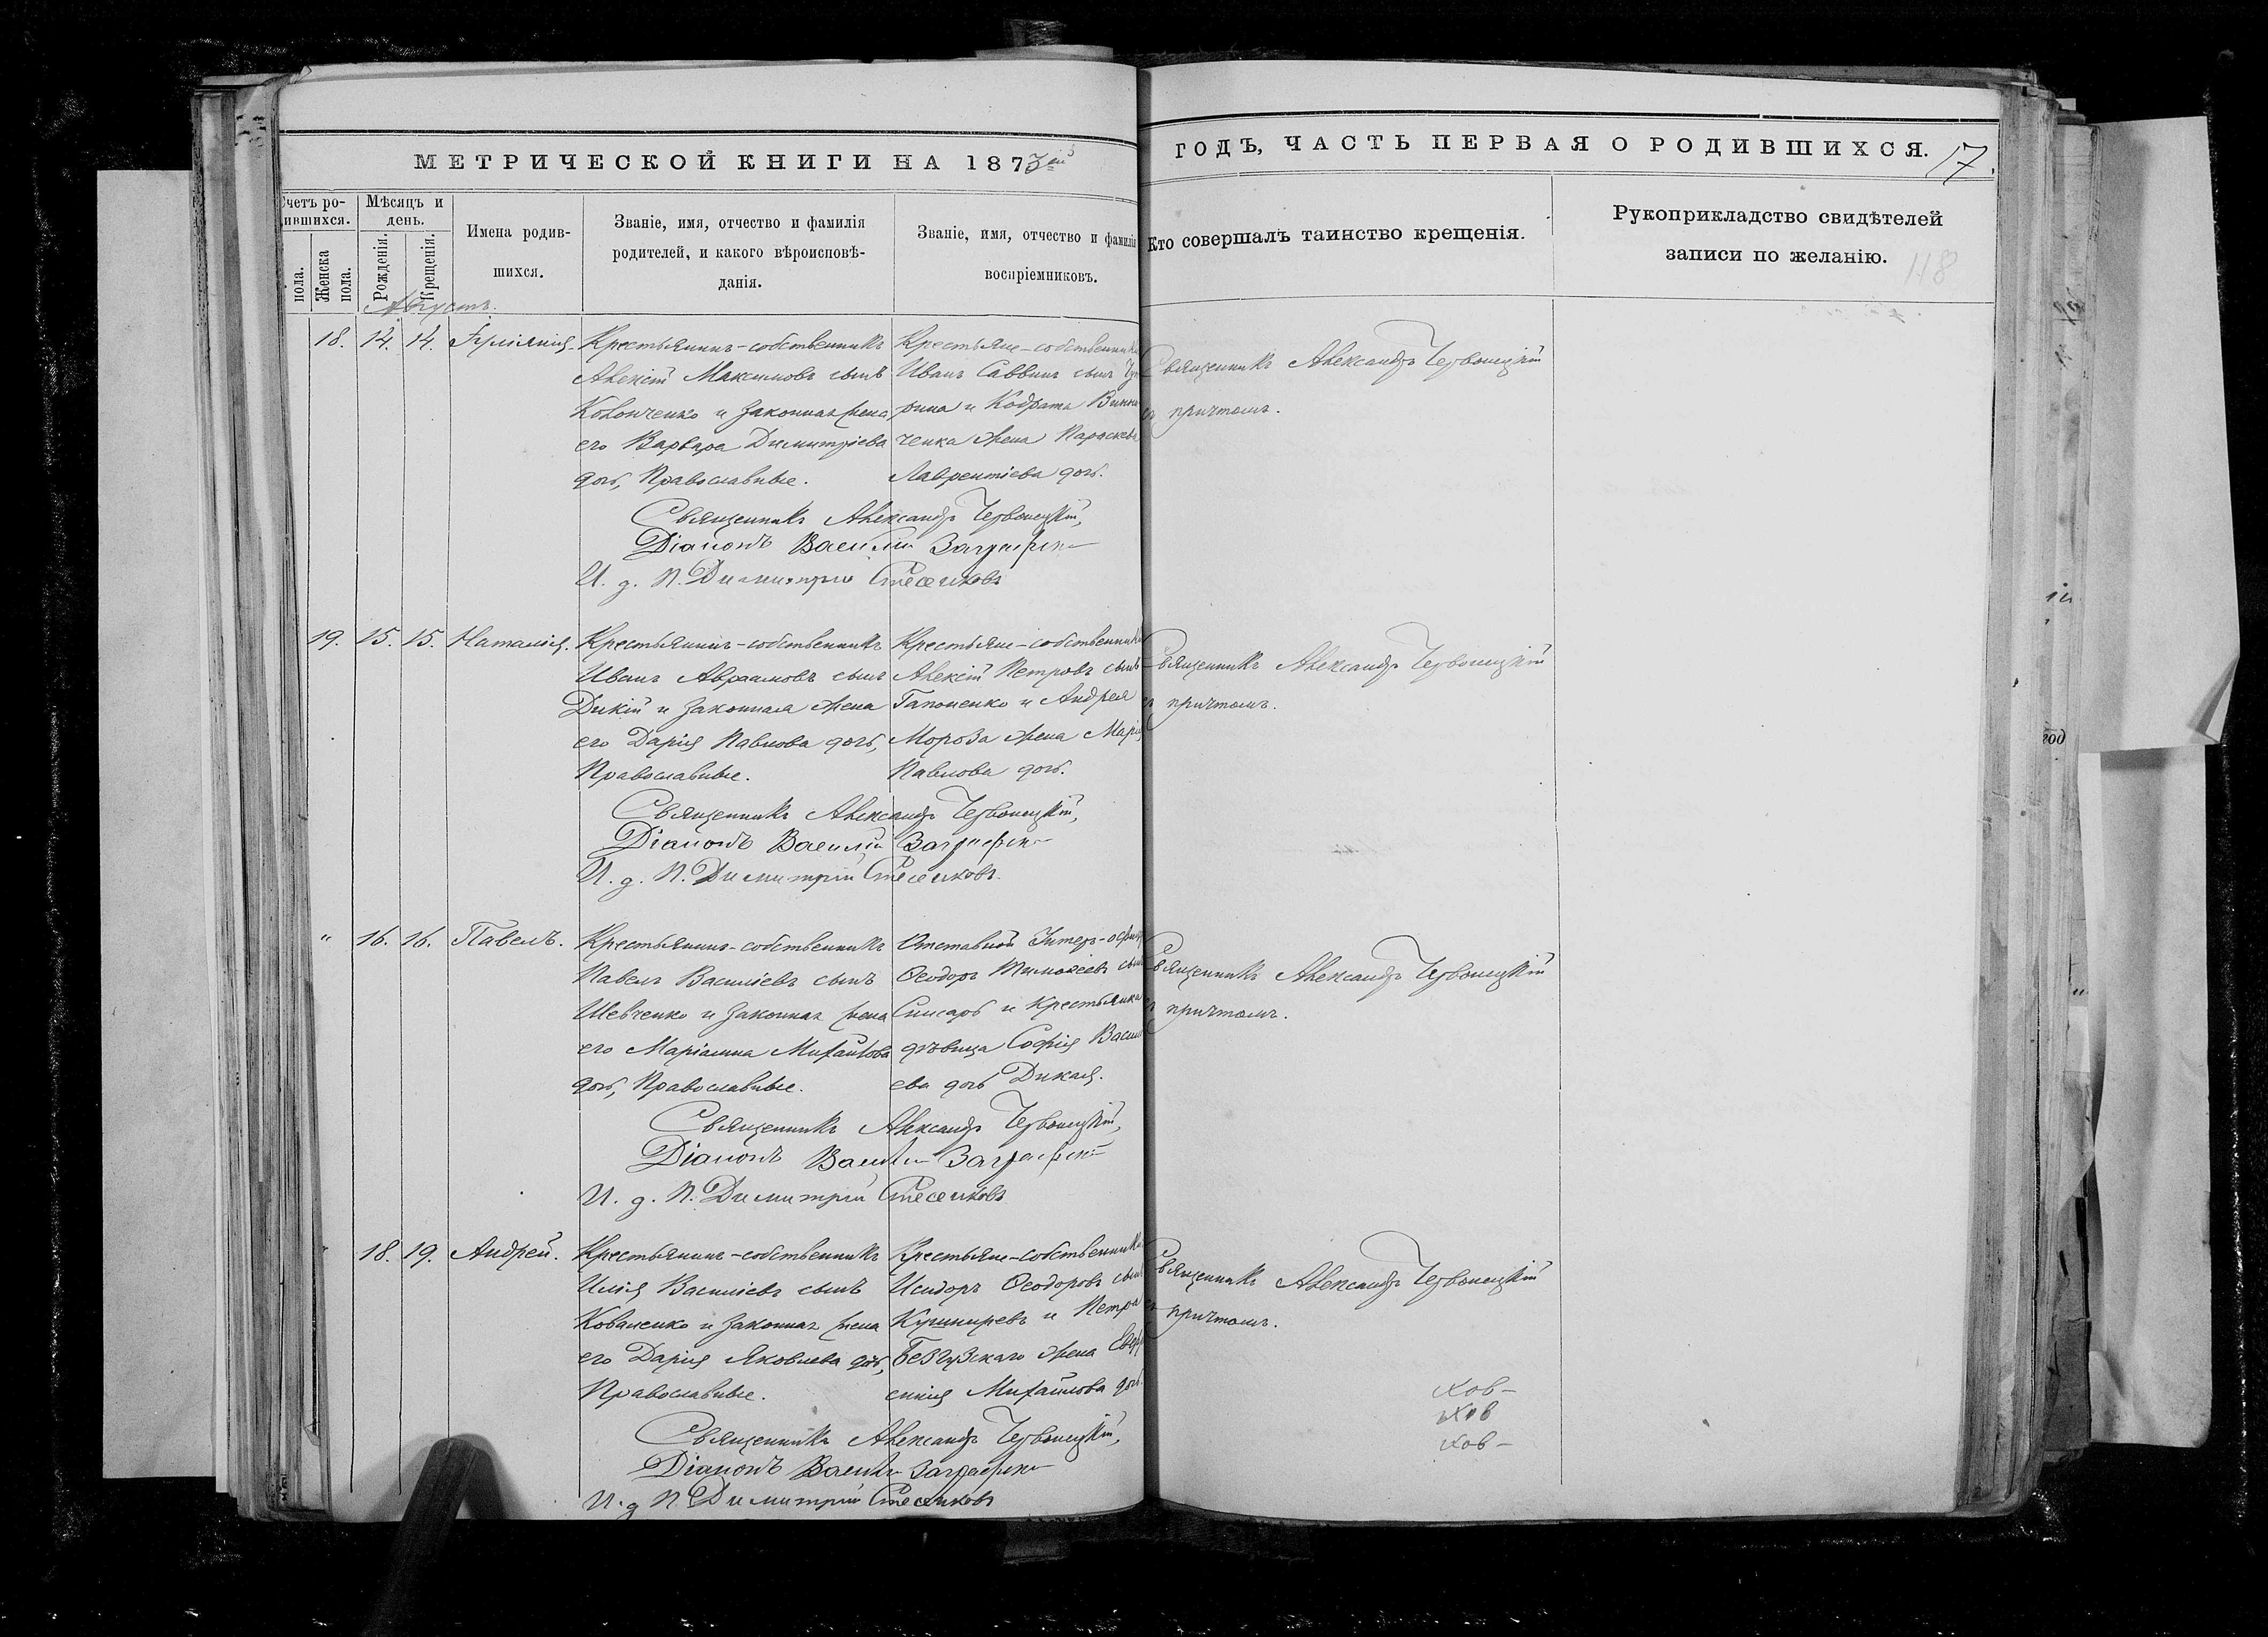 МЕТРИЧЕСКОЙ КНИГИ НА 1873й
ГОДЪ, ЧАСТЬ ПЕРВАЯ О РОДИВШИХСЯ. 17.
Счетъ ро-
дившихся.
пола.
Женска
пола.
Мѣсяцъ и
день.
Рожденія.
Крещенія.
Имена родив-
шихся.
Званіе, имя, отчество и фамилія
родителей, и какого вѣроисповѣ-
данія.
Званіе, имя, отчество и фамилія
воспріемниковъ.
Кто совершалъ таинство крещенія.
Рукоприкладство свидѣтелей
записи по желанію.
118
Августъ.
18. 14. 14. Іуліянія.
Крестьянинъ-собственникъ
Алексій Максимовъ сынъ
и законная жена
его Варвара Димитріева
дочь, Православные.
Крестьяне-собственники
Иванъ Саввинъ сынъ
рина и Кодрата Винни
ченка жена Параскева
Лаврентіева дочь.
Священникъ Александръ Червонецкій
съ причтомъ.
Священникъ Александръ Червонецкій,
Діаконъ Василій
И. д. П. Димитрій
19. 15. 15. Наталія.
Крестьянинъ-собственникъ
Иванъ Авраамовъ сынъ
Дикій и законная жена
его Дарія Павлова дочь,
Православные.
Крестьяне-собственники
Алексій Петровъ сынъ
Гапоненко и Андрея
Мороза жена Марія
Павлова дочь.
Священникъ Александръ Червонецкій
съ причтомъ.
Священникъ Александръ Червонецкій,
Діаконъ Василій
И. д. П. Димитрій
" 16. 16. Павелъ.
Крестьянинъ-собственникъ
Павелъ Василіевъ сынъ
Шевченко и законная жена
его Маріанна Михайлова
дочь, Православные.
Отставной Унтеръ-офицеръ
Ѳеодоръ Тимоѳеевъ сынъ
Снисарь и Крестьянка
дѣвица Софія Васили
ева дочь Дикая.
Священникъ Александръ Червонецкій
съ причтомъ.
Священникъ Александръ Червонецкій,
Діаконъ Василій
И. д. П. Димитрій
18. 19. Андрей.
Крестьянинъ-собственникъ
Илія Василіевъ сынъ
Коваленко и законная жена
его Дарія Яковлева дочь,
Православные.
Крестьяне-собственники
Исидоръ Ѳеодоровъ сынъ
Кушниревъ и Петра
Безгузскаго жена Евдо
Михайлова дочь.
Священникъ Александръ Червонецкій
съ причтомъ.
Священникъ Александръ Червонецкій,
Діаконъ Василій
И. д. П. Димитрій